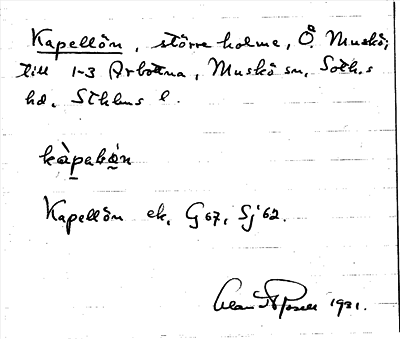 Kapellön, större holme, Ö. Muskö;
till 1-3 Arbottna, Muskö sn, Soth.s
hd, Sthlms l.
kàpalö̀n
Kapellön ek. G 67, Sj 62.
1931.